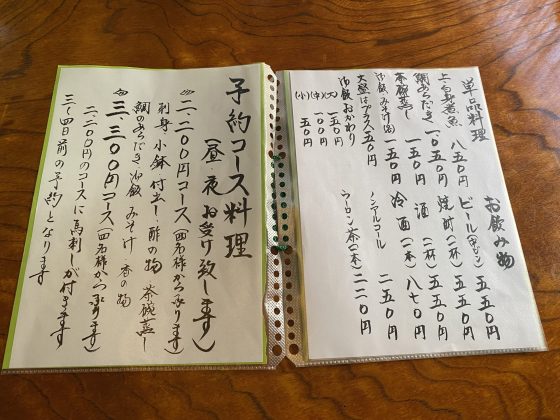 単品料理
上、白身煮魚 八五〇円
鯛あらだき 一、〇五〇円
茶碗蒸し 一五〇円
御飯 みそ汁(各) 一五〇円
大盛はプラス五〇円
御飯おかわり
(大) 一五〇円
(中) 一〇〇円
(小) 五〇円
お飲み物
ビール(中ビン) 五五〇円
焼酎(一杯) 五五〇円
酒(一杯) 五五〇円
冷酒(一本) 八七〇円
ノンアルコール 二五〇円
ウーロン茶(一本) 二二〇円
予約コース料理
(昼、夜 お受け致します)
二、二〇〇円コース(四名様から承ります)
刺身 小鉢 付出し 酢の物 茶碗蒸し
鯛のあらだき 御飯 みそ汁 香の物
三、三〇〇円コース(四名様から承ります)
二、二〇〇円のコースに馬刺しが付きます
三〜四日前の予約となります